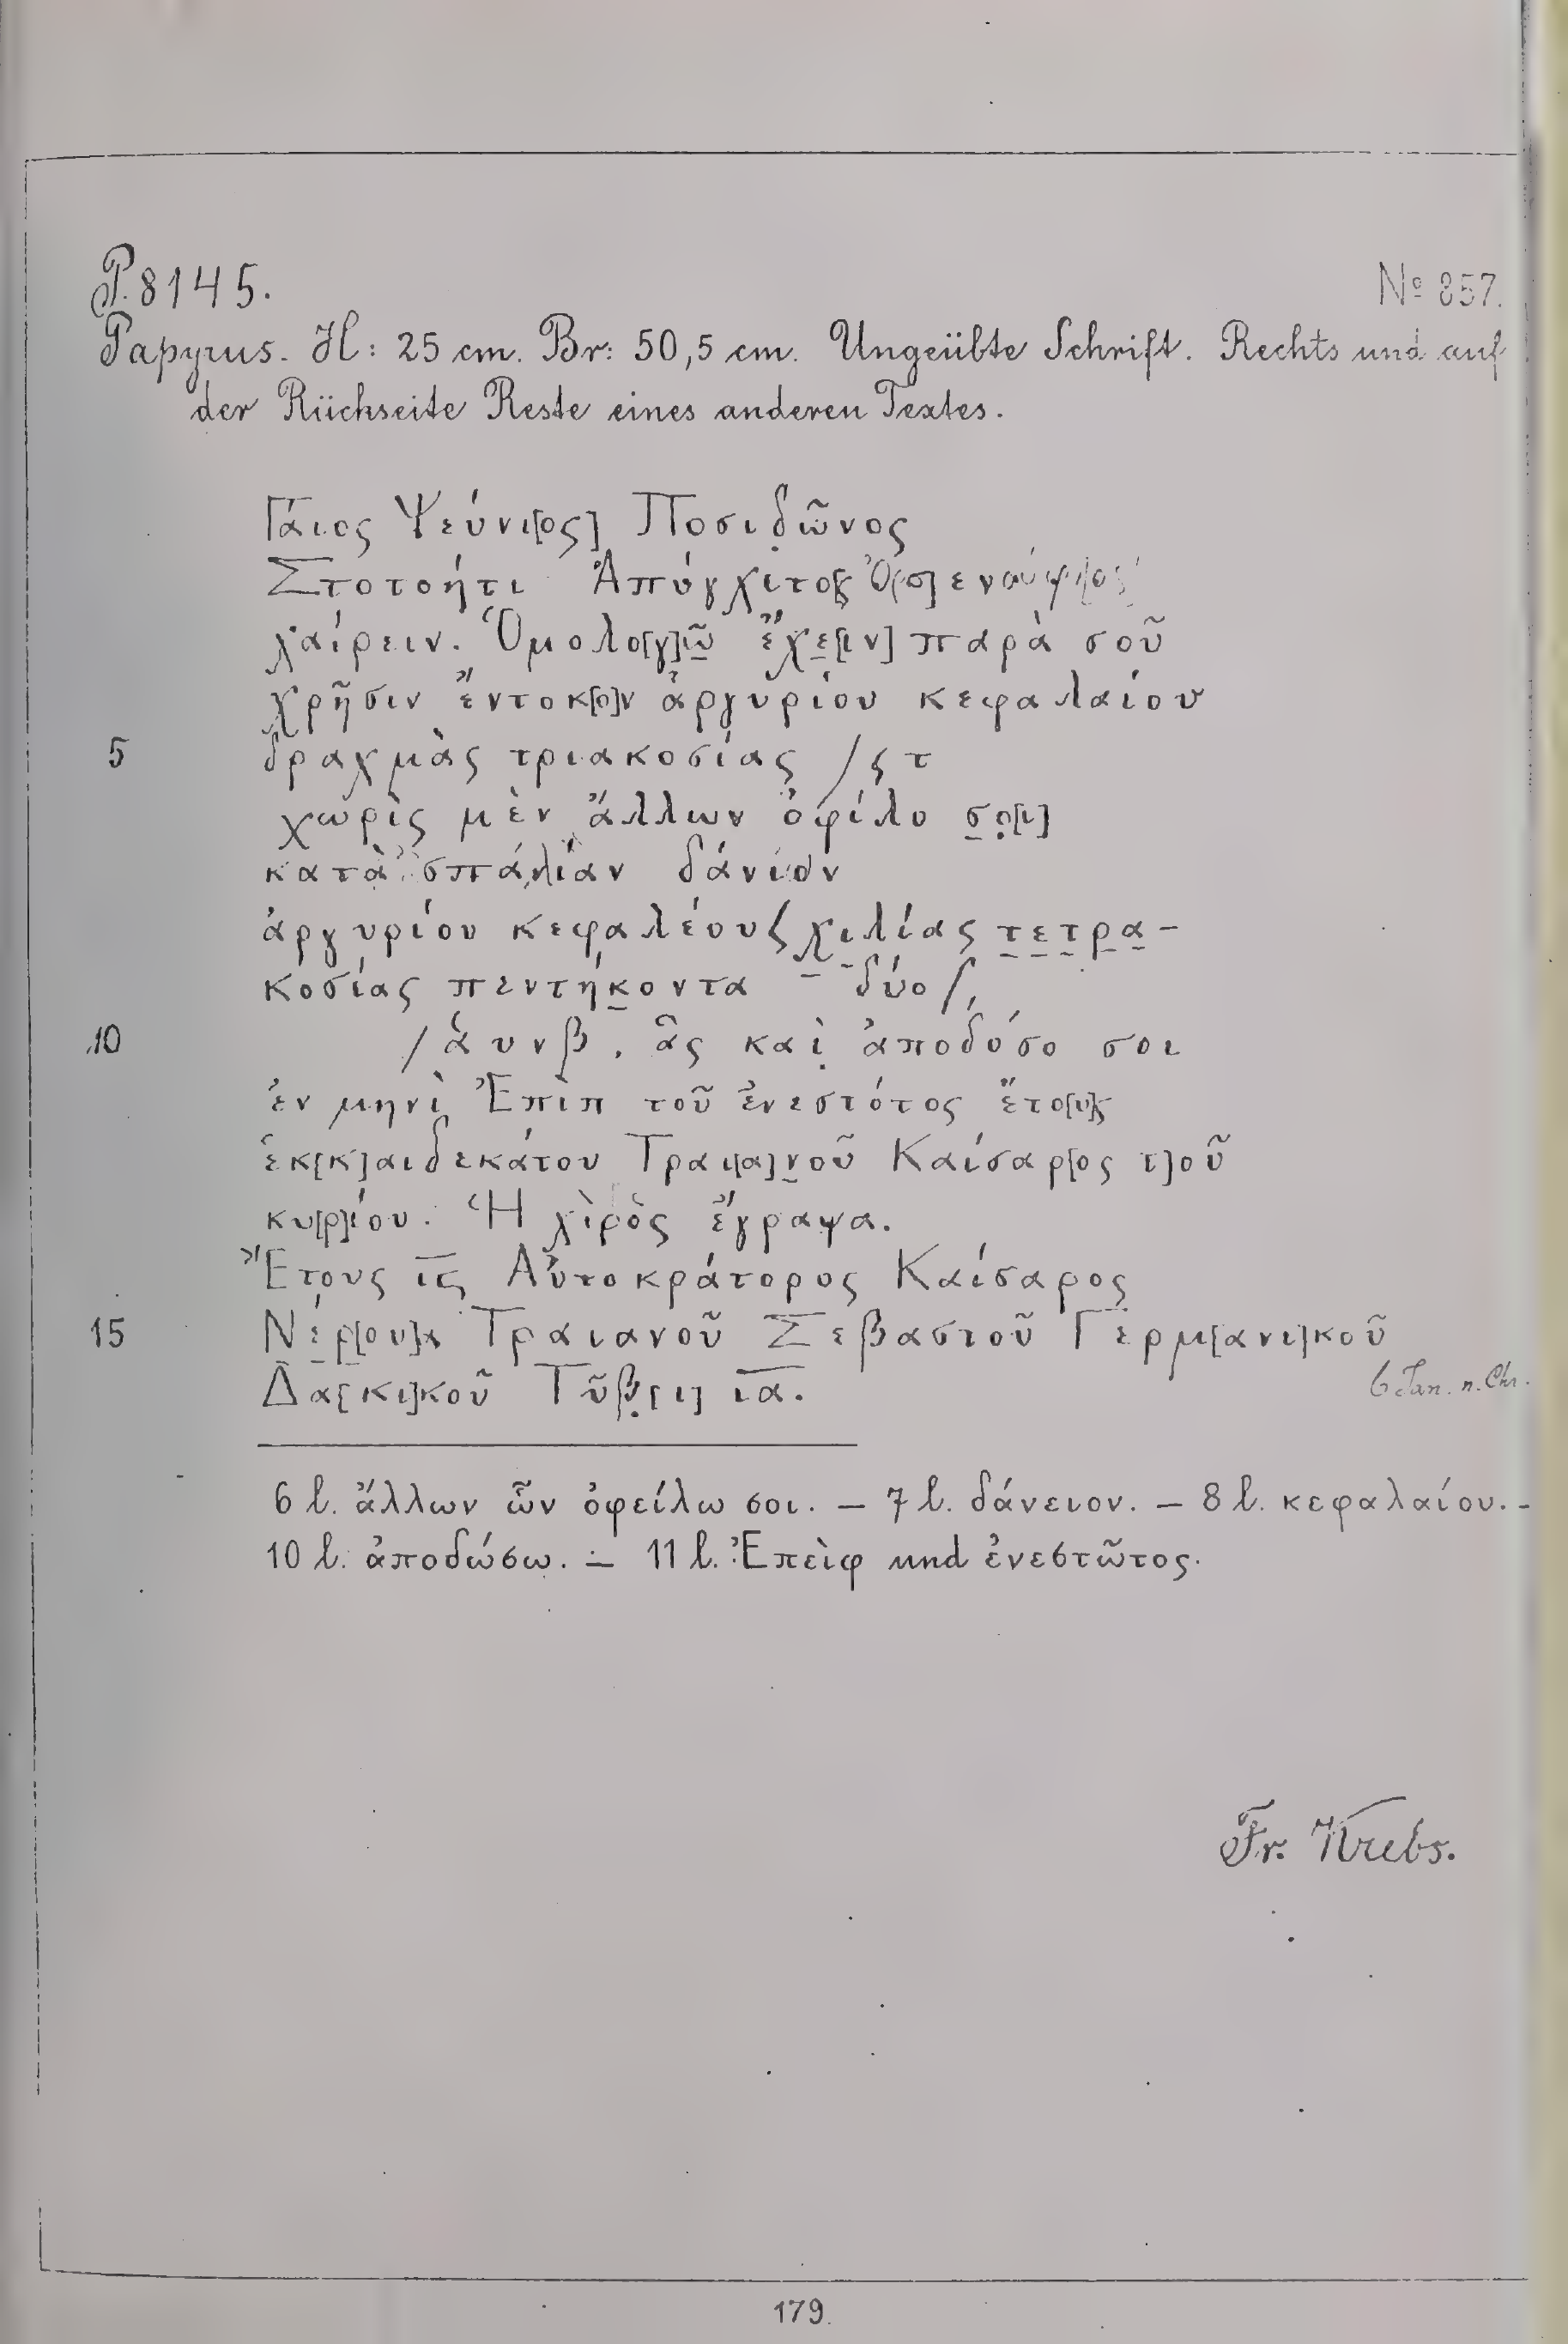 P. 8145.
№ 857.
Papyrus. H: 25 cm. Br: 50,5 cm. Ungeübte Schrift. Rechts und auf
der Rückseite Reste eines anderen Textes.
Γάιος Ψεύνι[ος] Ποσιδ̣ῶνος
Στοτοήτι Ἀπύγχιτο[ς] Ὀ[ρσ]ενούφι[ος]
χαίρειν. Ὁμολο[γ]ῶ̲ ἔχε̲[ιν] παρὰ σοῦ
χρῆσιν ἔντοκ[ο]ν ἀργυρίου κεφαλαίου
5 δραχμὰς τριακοσίας / ϛ τ
χωρὶς μὲν ἄλλων ὀφίλυ σ̲ο̣[ι]
κατὰ δάνιον
ἀργυρίου κεφαλέου ϛ χ̲ι̲λίας τ̲ε̲τ̲ρ̲α̲-
κοσίας πεντήκ̲οντα δύο /,
10 / ἁ υ ν β , ἃς καὶ̣ ἀποδύσο σοι
ἐν μηνὶ Ἐπὶπ τοῦ ἐνεστότος ἔτο[υ]ς
ἑκ[κ]αιδεκάτου Τραι[α]ν̲οῦ Καίσαρ[ος τ]οῦ
κυ[ρ]ίου. Ἡ χὶρὸς ἔγραψα.
Ἔτους ι̅ϛ̅ Αὐτοκράτορος Καίσαρος
15 Νέ̲ρ̲[ου]α Τραιανοῦ Σεβαστοῦ Γερμ[ανι]κοῦ
Δα[κι]κοῦ Τῦβ̣[ι] ι̅α̅.
6 Jan. n. Chr.
6 l. ἄλλων ὧν ὀφείλω σοι. — 7 l. δάνειον. — 8 l. κεφαλαίου. -
10 l. ἀποδώσω. — 11 l. Ἐπεὶφ und ἐνεστῶτος.
Fr. Krebs.
179.